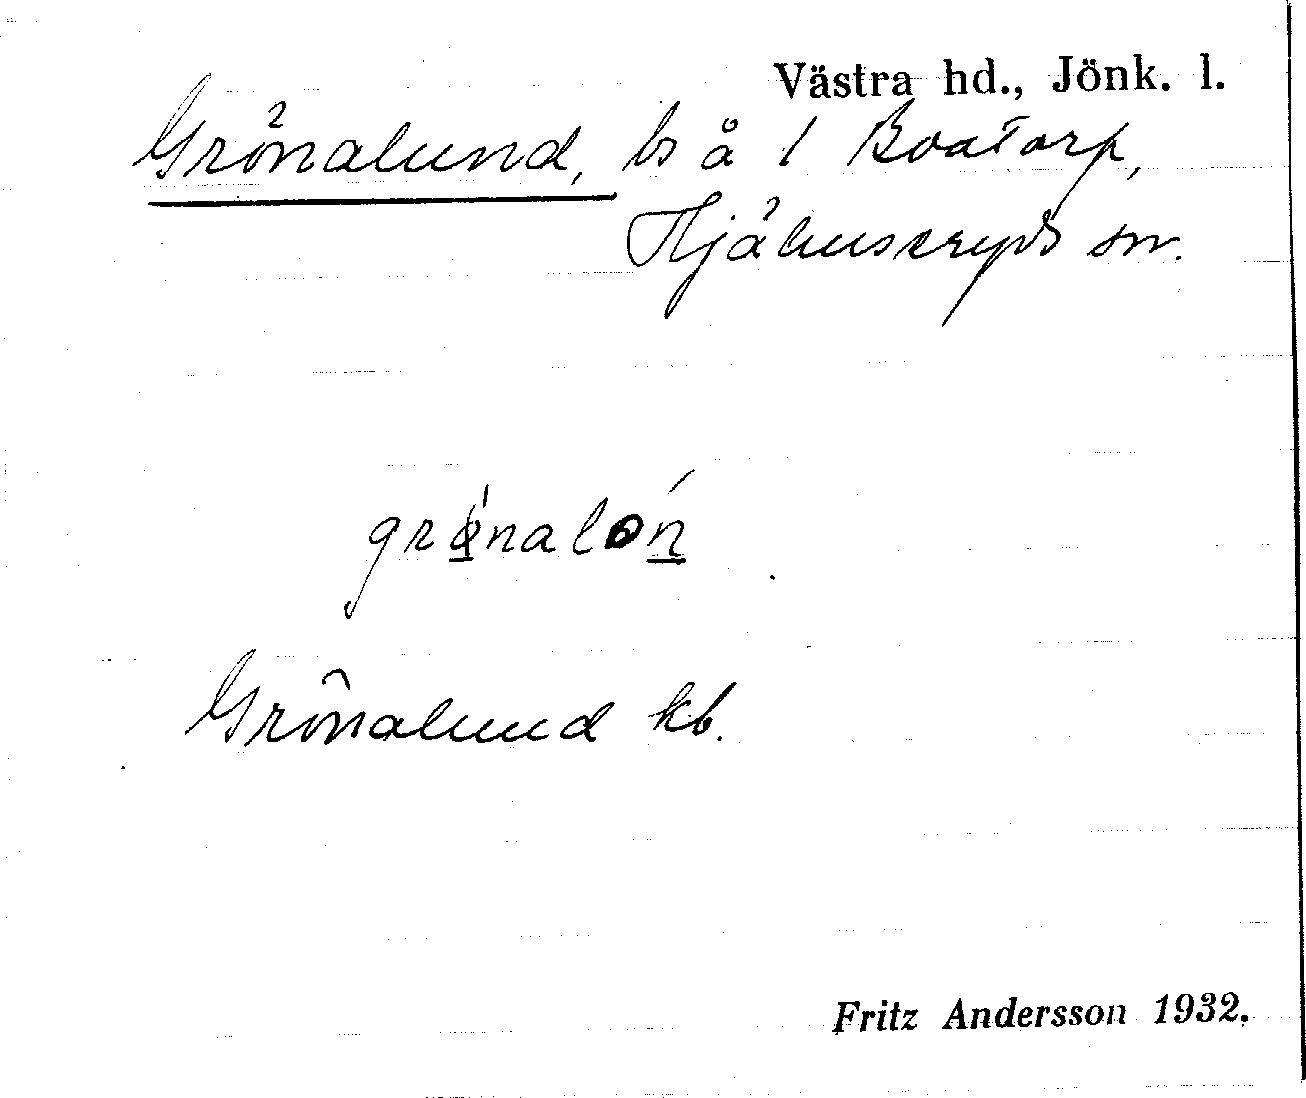 Västra hd., Jönk. l.
Grönalund, ls å 1 Boatorp,
Hjälmseryds sn.
grǿnaloń
Grönalund kb.
Fritz Andersson 1932.